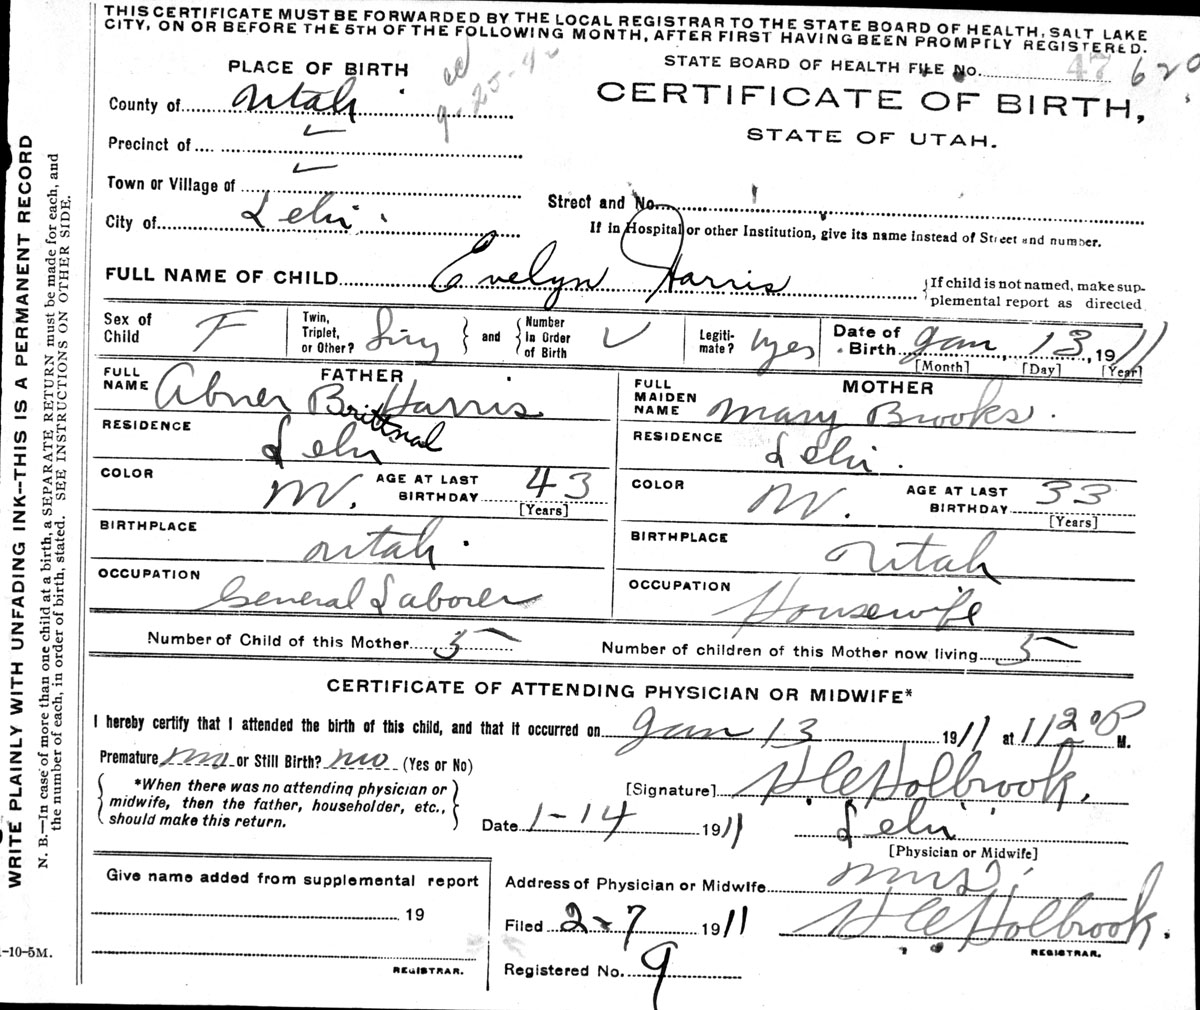 THIS CERTIFICATE MUST BE FORWARDED BY THE LOCAL REGISTRAR TO THE STATE BOARD OF HEALTH, SALT LAKE
CITY, ON OR BEFORE THE 5TH OF THE FOLLOWING MONTH, AFTER FIRST HAVING BEEN PROMPTLY REGISTERED.
STATE BOARD OF HEALTH FILE No. 47 620
PLACE OF BIRTH
9-25-42
CERTIFICATE OF BIRTH,
STATE OF UTAH.
County of Utah
Precinct of
Town or Village of
City of Lehi.
Street and No.
If in Hospital or other Institution, give its name instead of Street and number.
FULL NAME OF CHILD Evelyn Harris
{If child is not named, make sup-
plemental report as directed
Sex of Child F
Twin, Triplet, or Other? Sing } and { Number in Order of Birth
Legiti-mate? yes
Date of Birth Jan, 13, 1911
[Month] [Day] [Year]
FATHER
FULL NAME Abner Brittnal Harris
RESIDENCE Lehi
COLOR W.
AGE AT LAST BIRTHDAY 43
[Years]
BIRTHPLACE Utah.
OCCUPATION General Laborer
MOTHER
FULL MAIDEN NAME Mary Brooks.
RESIDENCE Lehi.
COLOR W.
AGE AT LAST BIRTHDAY 33
[Years]
BIRTHPLACE Utah
OCCUPATION Housewife
Number of Child of this Mother 5
Number of children of this Mother now living 5
CERTIFICATE OF ATTENDING PHYSICIAN OR MIDWIFE*
I hereby certify that I attended the birth of this child, and that it occurred on Jan 13 1911 at 1120 P M.
Premature no or Still Birth? no (Yes or No)
{ *When there was no attending physician or
midwife, then the father, householder, etc.,
should make this return. }
[Signature] H.C. Holbrook.
Date 1-14 1911 Lehi
[Physician or Midwife]
Give name added from supplemental report
19
REGISTRAR.
Address of Physician or Midwife
Filed 2-7 1911 H C Holbrook.
REGISTRAR.
Registered No. 9
WRITE PLAINLY WITH UNFADING INK--THIS IS A PERMANENT RECORD
N. B.--In case of more than one child at a birth, a SEPARATE RETURN must be made for each, and
the number of each, in order of birth, stated. SEE INSTRUCTIONS ON OTHER SIDE.
-10-5M.